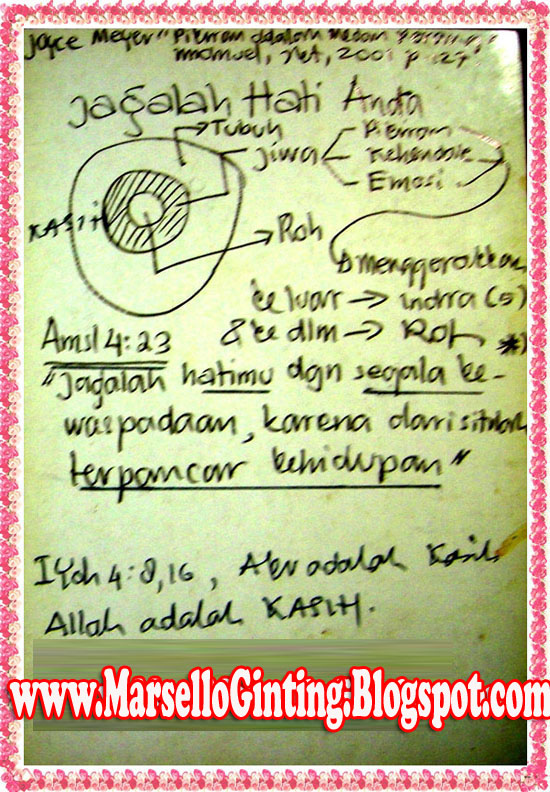 Joyce Meyer "Pikiran adalah Medan
Imanuel, 2001 p 127
Jagalah Hati Anda
Tubuh
Jiwa
Pikiran
Kehendak
Emosi
KASIH
Roh
menggerakkan
keluar → indra (5)
& ke dlm → Roh *)
Amsl 4:23
"Jagalah hatimu dgn segala ke-
waspadaan, karena dari situlah
terpancar kehidupan"
I Yoh 4:8,16, adalah Kasih
Allah adalah KASIH.
www.MarselloGinting.Blogspot.com